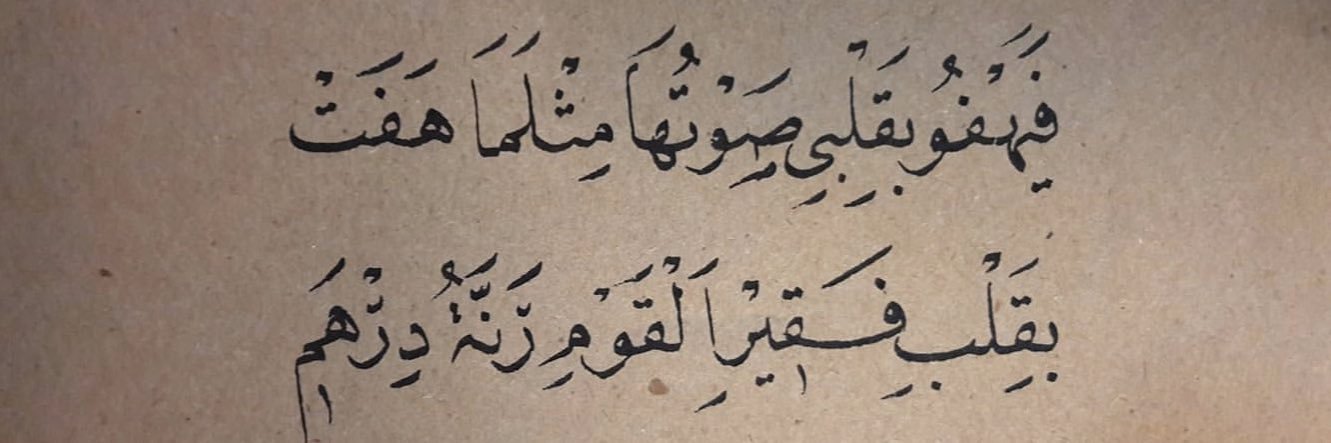 فَيَهْفُو بِقَلْبِي صَوْتُهَا مِثْلَمَا هَفَتْ
بِقَلْبِ فَقِيْرِ الْقَوْمِ رَنَّةُ دِرْهَمِ